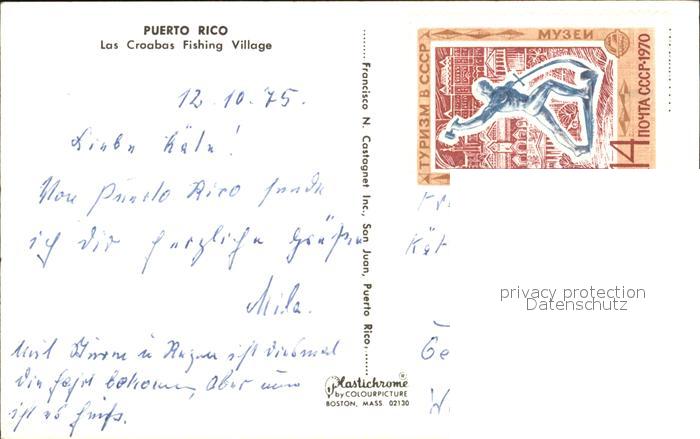 PUERTO RICO
Las Croabas Fishing Village
12.10.75.
Liebe Käte!
Von Puerto Rico sende
ich dir herzliche Grüße
Mila.
Mit Sturm u Regen ist diesmal
die bekommen, aber nun
ist es heiß.
Francisco N. Castagnet Inc., San Juan, Puerto Rico,
Plastichrome®
by COLOURPICTURE
BOSTON, MASS. 02130
ТУРИЗМ В СССР
МУЗЕИ
14 ПОЧТА СССР·1970
Kät
privacy protection
Datenschutz
Ge
W.